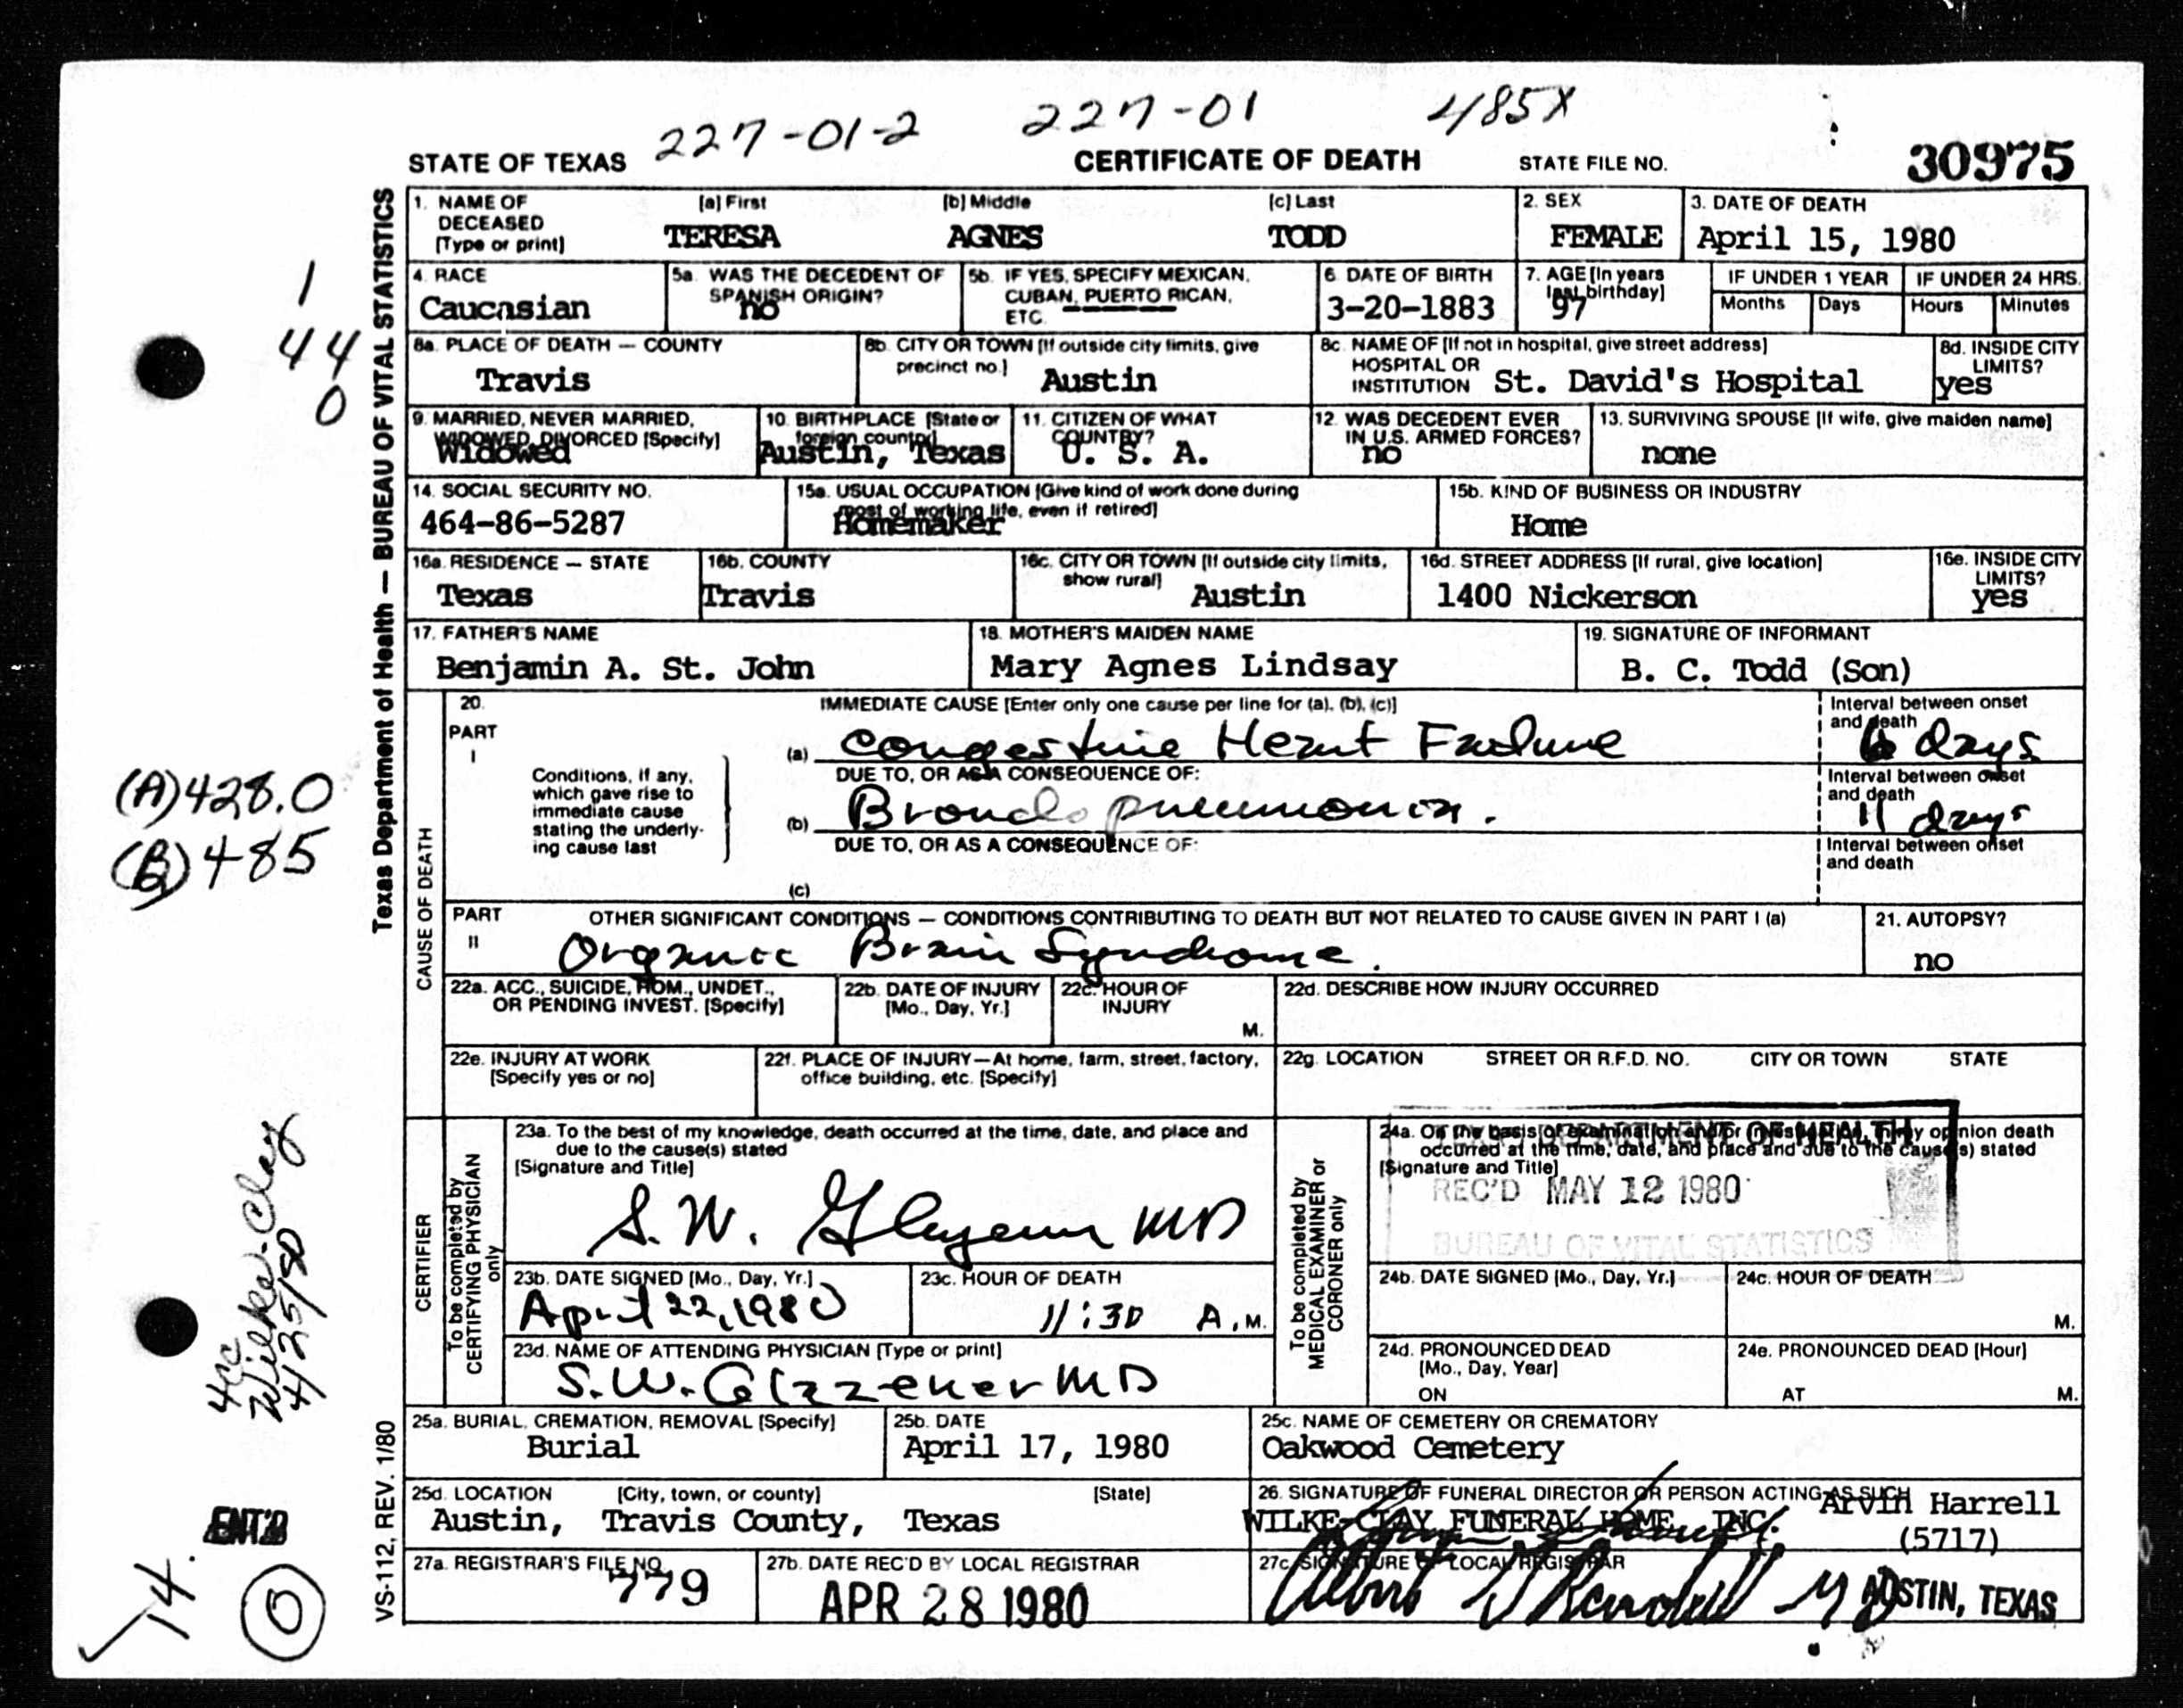 227-01-2 227-01 485X
STATE OF TEXAS CERTIFICATE OF DEATH STATE FILE NO. 30975
1. NAME OF DECEASED [Type or print] [a] First [b] Middle [c] Last
TERESA AGNES TODD
2. SEX
FEMALE
3. DATE OF DEATH
April 15, 1980
4. RACE
Caucasian
5a. WAS THE DECEDENT OF SPANISH ORIGIN?
no
5b. IF YES, SPECIFY MEXICAN, CUBAN, PUERTO RICAN, ETC.
6. DATE OF BIRTH
3-20-1883
7. AGE [In years last birthday]
97
IF UNDER 1 YEAR
Months Days
IF UNDER 24 HRS.
Hours Minutes
8a. PLACE OF DEATH — COUNTY
Travis
8b. CITY OR TOWN [If outside city limits, give precinct no.]
Austin
8c. NAME OF [If not in hospital, give street address] HOSPITAL OR INSTITUTION
St. David's Hospital
8d. INSIDE CITY LIMITS?
yes
9. MARRIED, NEVER MARRIED, WIDOWED, DIVORCED [Specify]
Widowed
10. BIRTHPLACE [State or foreign country]
Austin, Texas
11. CITIZEN OF WHAT COUNTRY?
U. S. A.
12. WAS DECEDENT EVER IN U.S. ARMED FORCES?
no
13. SURVIVING SPOUSE [If wife, give maiden name]
none
14. SOCIAL SECURITY NO.
464-86-5287
15a. USUAL OCCUPATION [Give kind of work done during most of working life, even if retired]
Homemaker
15b. KIND OF BUSINESS OR INDUSTRY
Home
16a. RESIDENCE — STATE
Texas
16b. COUNTY
Travis
16c. CITY OR TOWN [If outside city limits, show rural]
Austin
16d. STREET ADDRESS [If rural, give location]
1400 Nickerson
16e. INSIDE CITY LIMITS?
yes
17. FATHER'S NAME
Benjamin A. St. John
18. MOTHER'S MAIDEN NAME
Mary Agnes Lindsay
19. SIGNATURE OF INFORMANT
B. C. Todd (Son)
CAUSE OF DEATH
20. PART I
IMMEDIATE CAUSE [Enter only one cause per line for (a), (b), (c)]
Conditions, if any, which gave rise to immediate cause stating the underlying cause last
(a) Congestive Heart Failure
Interval between onset and death
6 days
DUE TO, OR AS A CONSEQUENCE OF:
(b) Broncho pneumonia.
Interval between onset and death
11 days
DUE TO, OR AS A CONSEQUENCE OF:
(c)
Interval between onset and death
PART II OTHER SIGNIFICANT CONDITIONS — CONDITIONS CONTRIBUTING TO DEATH BUT NOT RELATED TO CAUSE GIVEN IN PART I (a)
Organic Brain Syndrome.
21. AUTOPSY?
no
22a. ACC., SUICIDE, HOM., UNDET., OR PENDING INVEST. [Specify]
22b. DATE OF INJURY [Mo., Day, Yr.]
22c. HOUR OF INJURY M.
22d. DESCRIBE HOW INJURY OCCURRED
22e. INJURY AT WORK [Specify yes or no]
22f. PLACE OF INJURY—At home, farm, street, factory, office building, etc. [Specify]
22g. LOCATION STREET OR R.F.D. NO. CITY OR TOWN STATE
CERTIFIER
To be completed by CERTIFYING PHYSICIAN only
23a. To the best of my knowledge, death occurred at the time, date, and place and due to the cause(s) stated
[Signature and Title]
S. W. MD
23b. DATE SIGNED [Mo., Day, Yr.]
April 22, 1980
23c. HOUR OF DEATH
11:30 A.M.
23d. NAME OF ATTENDING PHYSICIAN [Type or print]
S.W. MD
To be completed by MEDICAL EXAMINER or CORONER only
24a. On the basis of examination and/or investigation, in my opinion death occurred at the time, date, and place and due to the cause(s) stated
[Signature and Title]
DEPARTMENT OF HEALTH
REC'D MAY 12 1980
BUREAU OF VITAL STATISTICS
24b. DATE SIGNED [Mo., Day, Yr.]
24c. HOUR OF DEATH M.
24d. PRONOUNCED DEAD [Mo., Day, Year] ON
24e. PRONOUNCED DEAD [Hour] AT M.
25a. BURIAL, CREMATION, REMOVAL [Specify]
Burial
25b. DATE
April 17, 1980
25c. NAME OF CEMETERY OR CREMATORY
Oakwood Cemetery
25d. LOCATION [City, town, or county] [State]
Austin, Travis County, Texas
26. SIGNATURE OF FUNERAL DIRECTOR OR PERSON ACTING AS SUCH
WILKE-CLAY FUNERAL HOME, INC. Arvin Harrell
(5717)
27a. REGISTRAR'S FILE NO.
779
27b. DATE REC'D BY LOCAL REGISTRAR
APR 28 1980
27c. SIGNATURE OF LOCAL REGISTRAR
AUSTIN, TEXAS
Texas Department of Health — BUREAU OF VITAL STATISTICS
VS-112, REV. 1/80
1
44
0
(A) 428.0
(B) 485
4rc
Wilke-Clay
4/25/80
ENT'D
14.
0